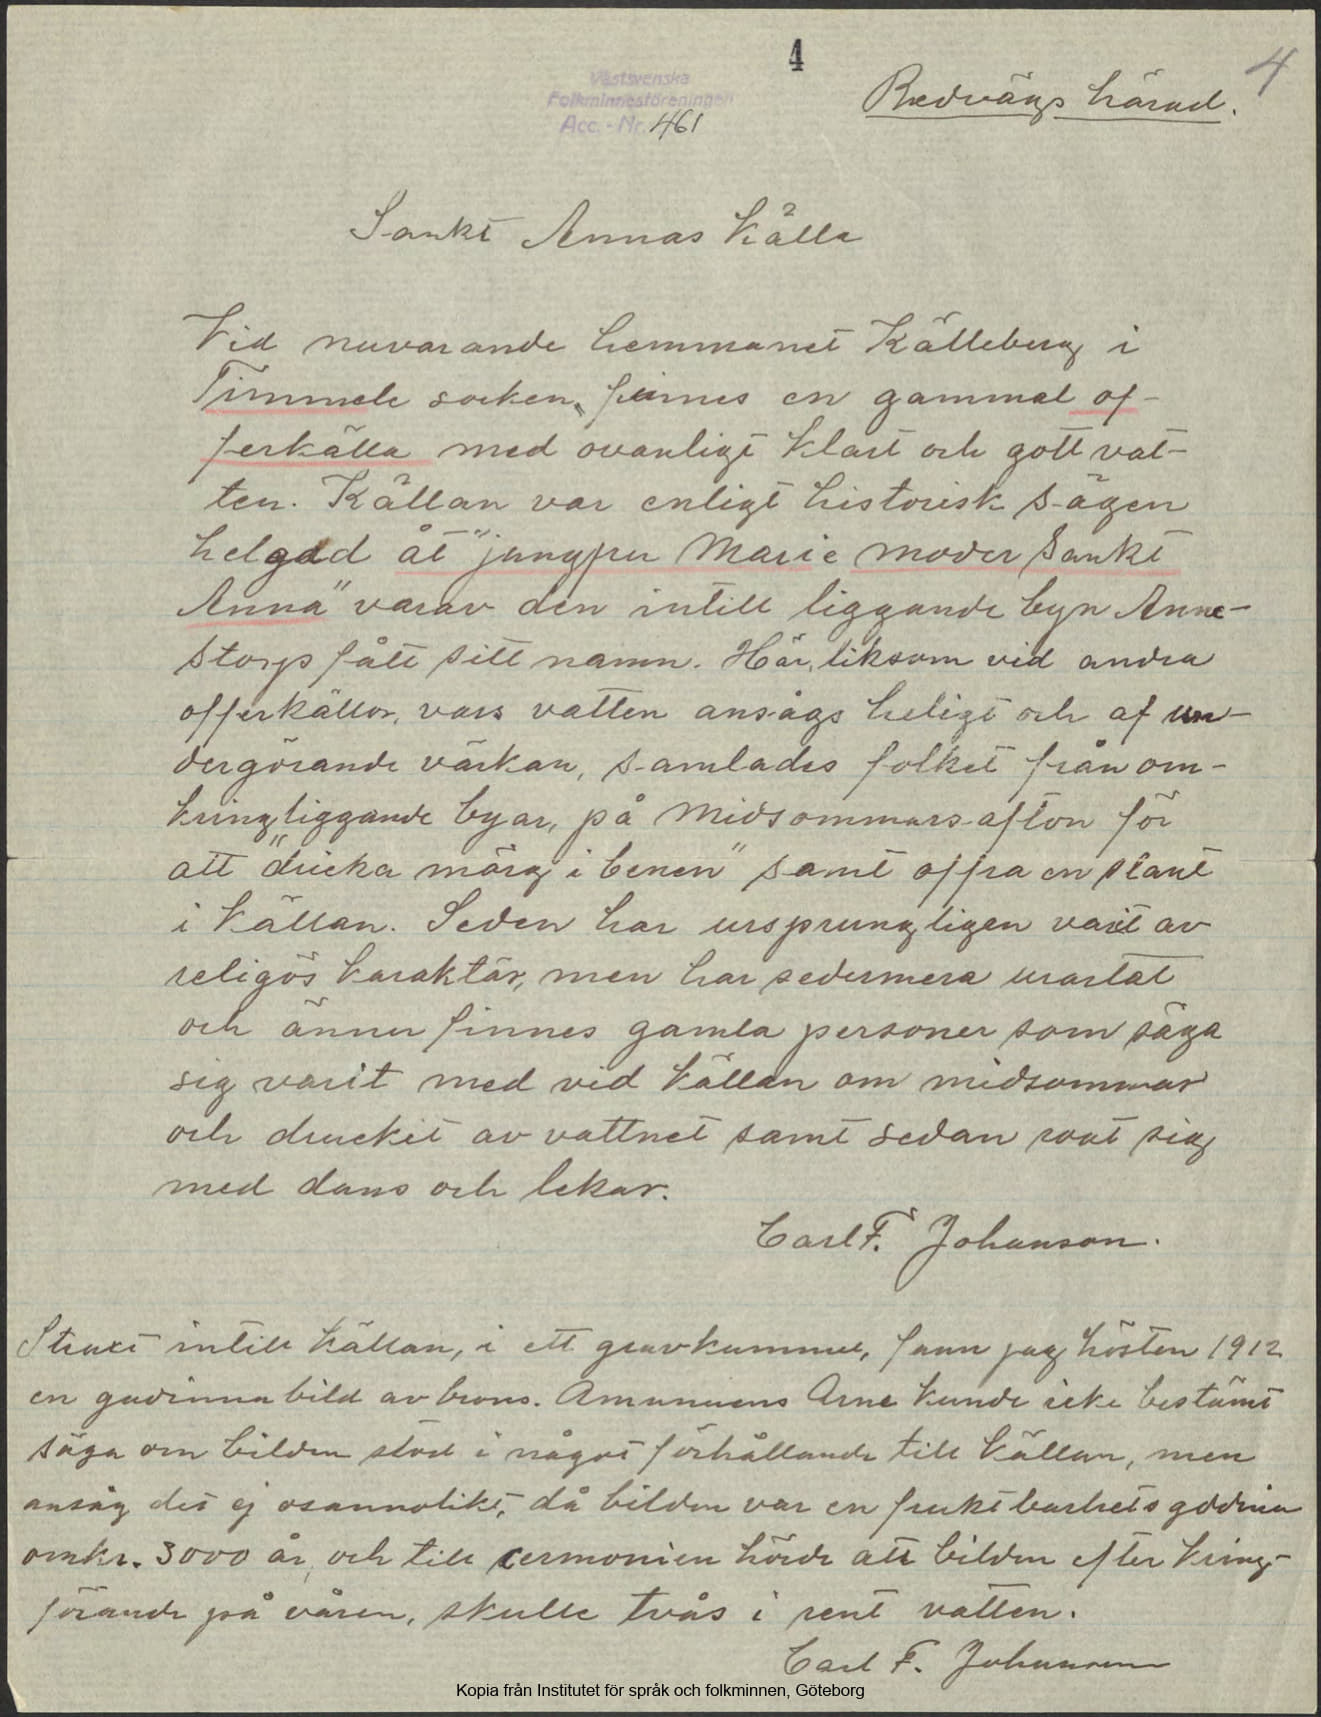 4
4
Västsvenska
Folkminnesföreningen
Acc. - Nr. 461
Redvägs härad.
Sankt Annas källa
Vid nuvarande hemmanet Källeberg i
Timmele socken, finnes en gammal of-
ferkälla med ovanligt klart och gott vat-
ten. Källan var enligt historisk sägen
helgad åt "jungfru Marie moder Sankt
Anna" varav den intill liggande byn Anne-
storp fått sitt namn. Här, liksom vid andra
offerkällor, vars vatten ansågs heligt och af un-
dergörande värkan, samlades folket från om-
kringliggande byar, på midsommarsafton för
att "dricka märg i benen" samt offra en slant
i källan. Seden har ursprungligen varit av
religös karaktär, men har sedermera urartat
och ännu finnes gamla personer som säga
sig varit med vid källan om midsommar
och druckit av vattnet samt sedan roat sig
med dans och lekar.
Carl F. Johanson.
Straxt intill källan, i ett gravkummel, fann jag hösten 1912
en gudinnabild av brons. Amanuens Arne kunde icke bestämt
säga om bilden stod i något förhållande till källan, men
ansåg det ej osannolikt, då bilden var en fruktbarhets gudinna
omkr. 3000 år, och till cermonien hörde att bilden efter kring-
förande på våren, skulle tvås i rent vatten.
Carl F. Johanson
Kopia från Institutet för språk och folkminnen, Göteborg